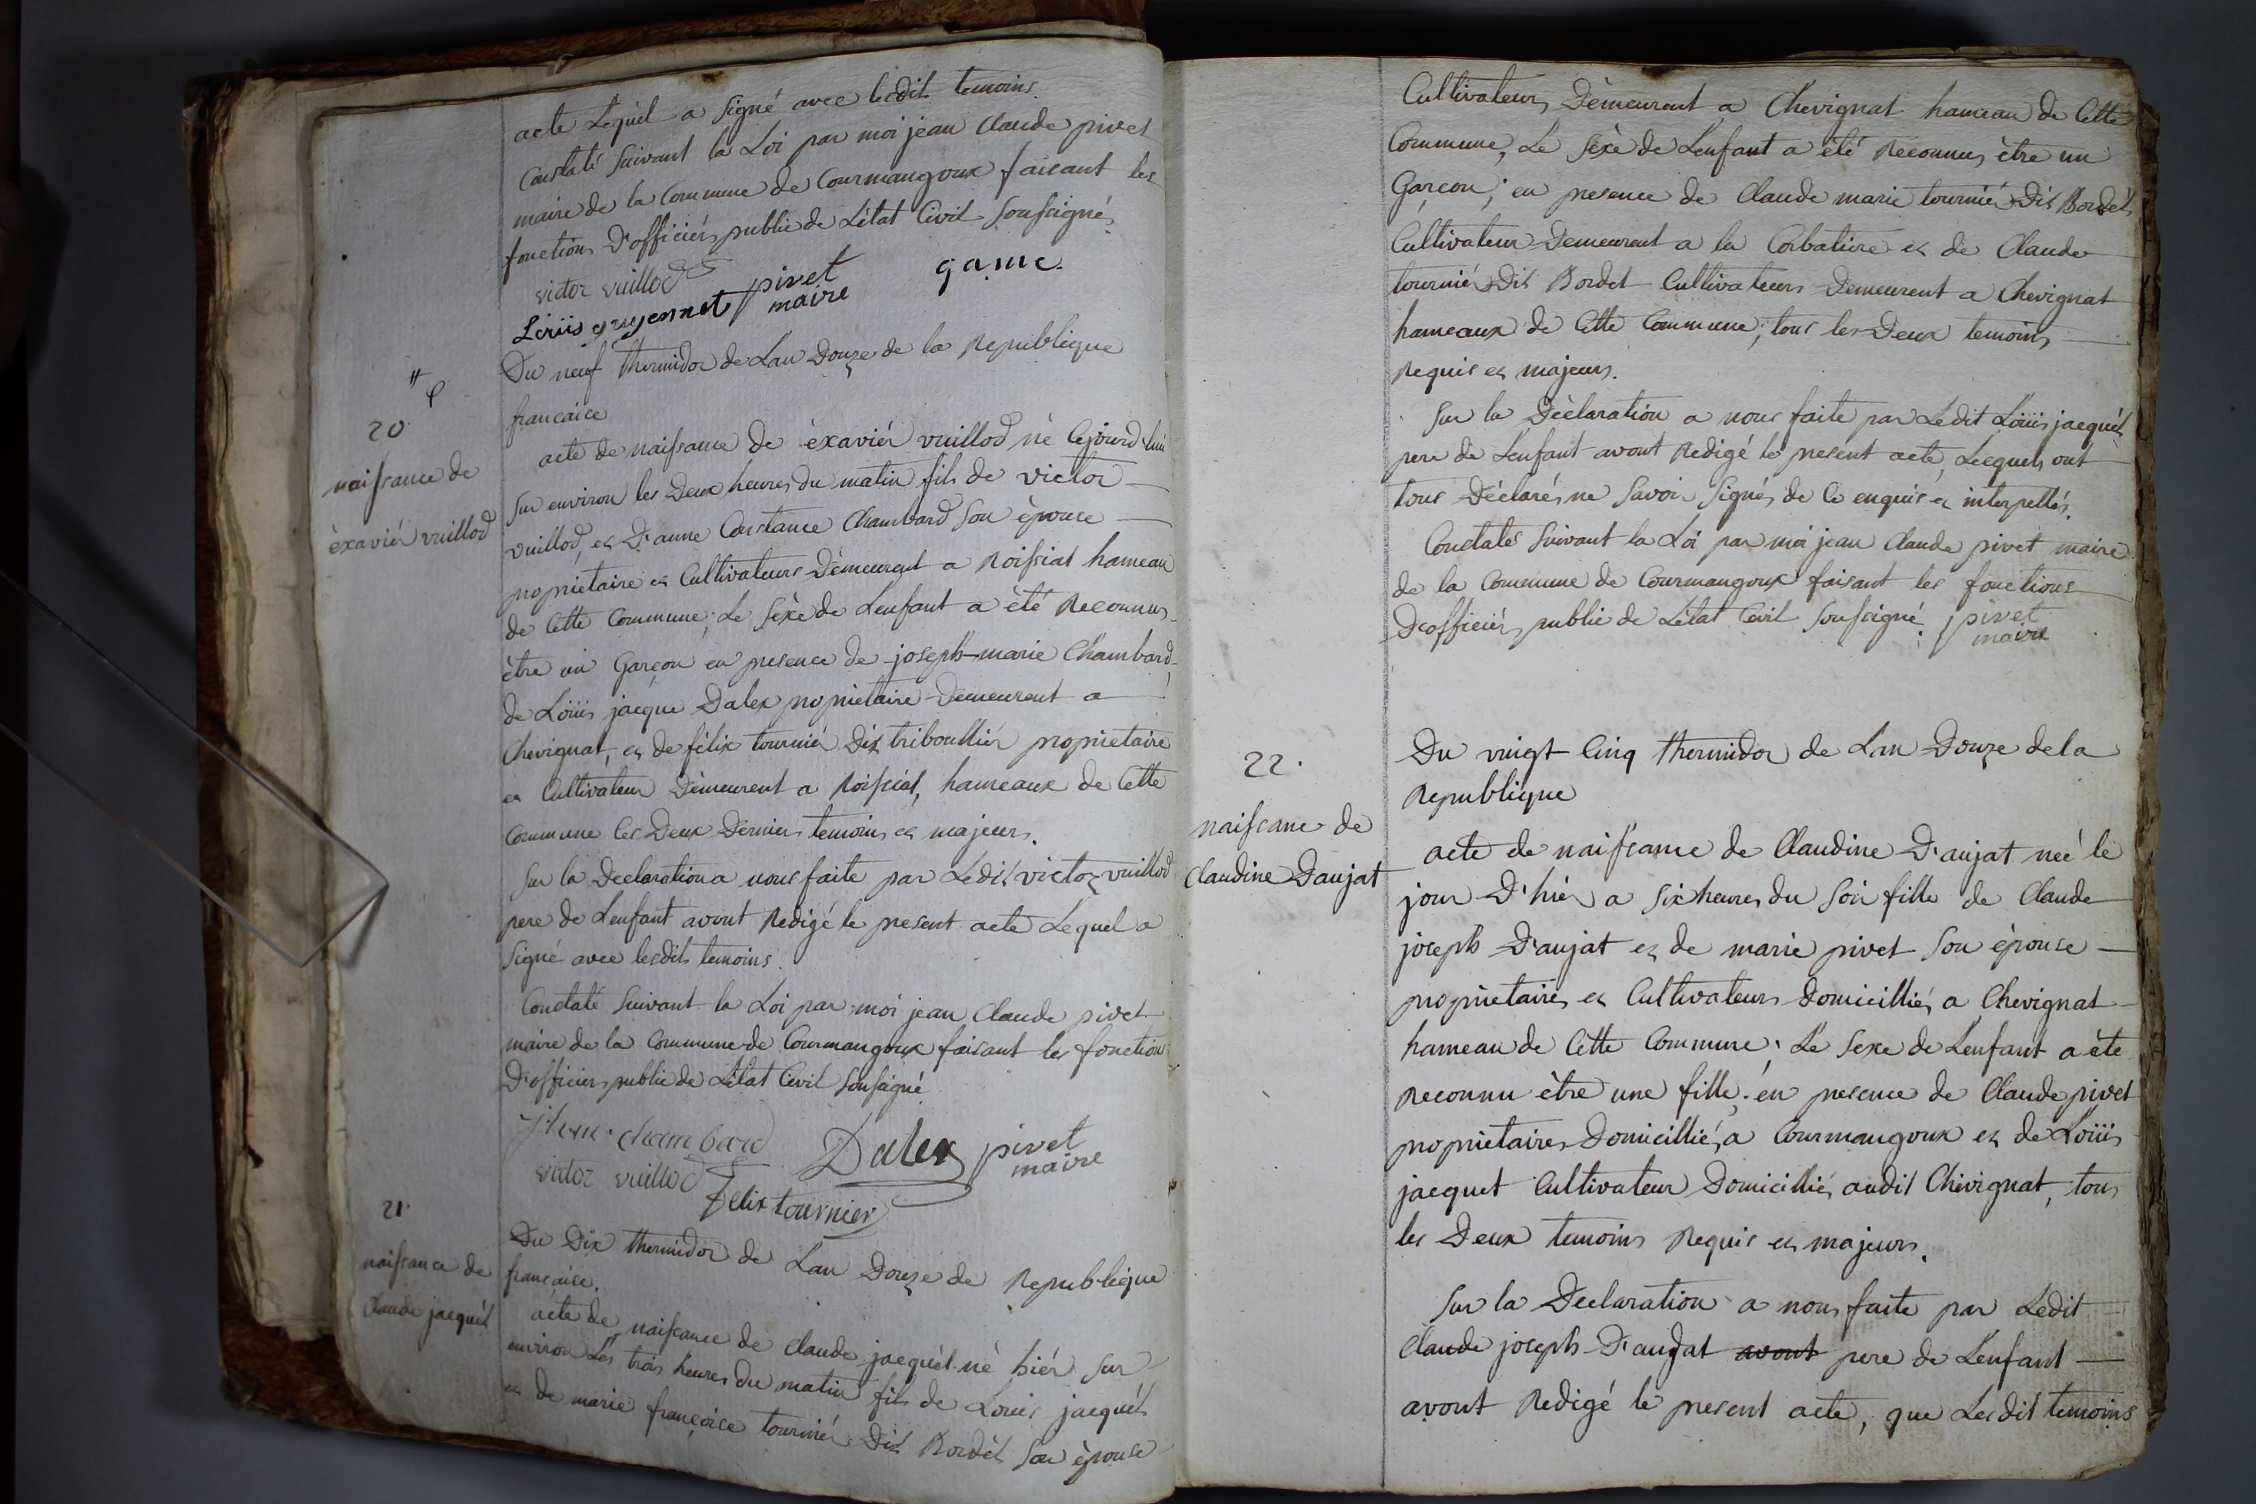 acte Lequel a signé avec lesdits temoins.
Constaté suivant la Loi par moi jean Claude pivet
maire de la Commune de Courmangoux faisant les
fonctions D'officier public de L'état Civil soussigné
victor vuillod
pivet
maire
game.
Loüis guyennet
Du neuf thermidor de Lan Douze de la Republique
francaice
20.
naissance de
èxaviér vuillod
acte de naissance de èxaviér vuillod né Cejourd'hui
sur environ les Deux heures du matin fils de victor
vuillod, et D'anne Constance Chambard son èpouse
propriétaire et Cultivateurs Demeurent a Roissiat hameau
de Cette Commune; Le sèxe de Lenfant a èté Reconnus
être un Garçon en presence de joseph-marie Chambard
de Loüis jacque Dalex propriétaire Demeurent a
Chevignat, et de félix tourniér Dit triboulliér propriétaire
et Cultivateur Demeurent a Roissiat, hameaux de Cette
Commune les Deux Derniers temoins et majeurs.
Sur la Declaration a nous faite par Ledit victor vuillod
pere de Lenfant avont Redigé le present acte Lequel a
signé avec lesdits temoins.
Constaté suivant la Loi par moi jean Claude pivet
maire de la Commune de Courmangoux faisant les fonction
D'officiers public de L'état Civil soussigné
chambard
Dalex
pivet
maire
victor vuillod
felix tournier
21.
naissance de
Claude jacquét
Du Dix thermidor de Lan Douze de Republique
francaice.
acte de naissance de Claude jacquét né hiér sur
environ Les trois heures du matin fils de Loüis jacquét
et de marie françoise tourniér Dit Bordét son èpouse
Cultivateurs Demeurent a Chevignat hameau de Cette
Commune, Le sèxe de Lenfant a èté Reconnus être un
Garçon; en presence de Claude marie tourniér Dit Bordét
Cultivateur Demeurent a la Corbatiere et de Claude
tourniér Dit Bordet Cultivateurs Demeurent a Chevignat
hameaux de Cette Commune; tous les Deux temoins
Requis et majeurs.
Sur la Dèclaration a nous faite par Ledit Loüis jacquét
pere de Lenfant avont Redigé le present acte, Lecquels ont
tous Déclarés ne savoir signés de Ce enquis et interpellés.
Constatés suivant la Loi par moi jean Claude pivet maire
de la Commune de Courmangoux faisant les fonctions
Dofficiér public de L'état Civil soussigné. pivet
maire
22.
naissance de
Claudine Daujat
Du vingt Cinq thermidor de Lan Douze de la
Republique
acte de naissance de Claudine D'aujat née le
jour D'hiér a six heures du soir fille de Claude
joseph D'aujat et de marie pivet son èpouse
propriétaires et Cultivateurs Domicilliés a Chevignat
hameau de Cette Commune; Le sexe de Lenfant a èté
Reconnu être une fille; en presence de Claude pivet
propriétaires Domicilliés a Courmangoux et de Loüis
jacquet Cultivateur Domicilliés audit Chevignat, tous
les Deux temoins Requis et majeurs.
Sur la Declaration a nous faite par Ledit
Claude joseph D'aujat avont pere de Lenfant
avont Redigé le present acte, que Lesdit temoins